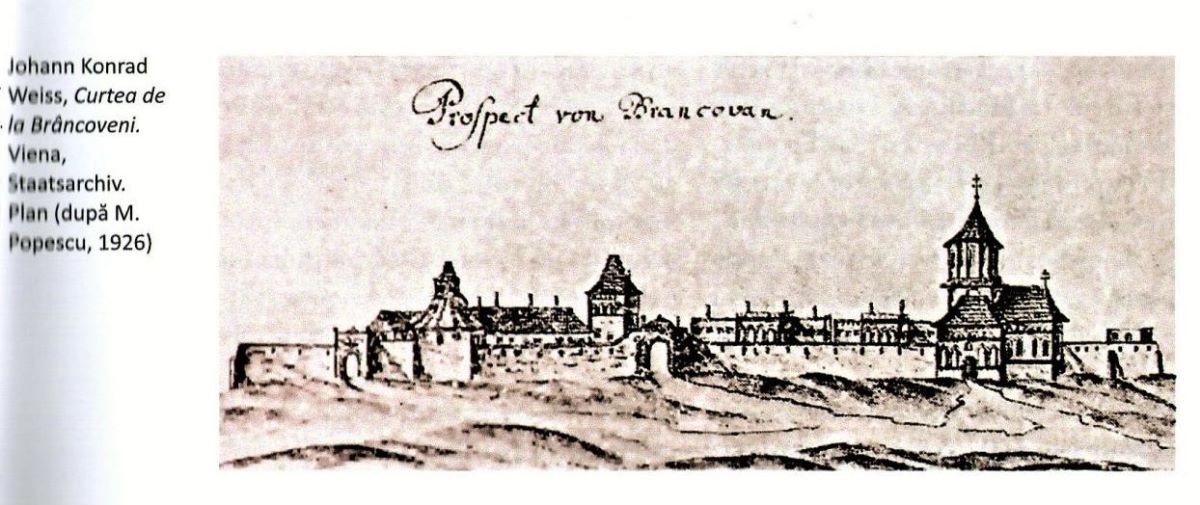 Johann Konrad
Weiss, Curtea de
la Brâncoveni.
Viena,
Staatsarchiv.
Plan (după M.
Popescu, 1926)
Prospect von Brancovan.